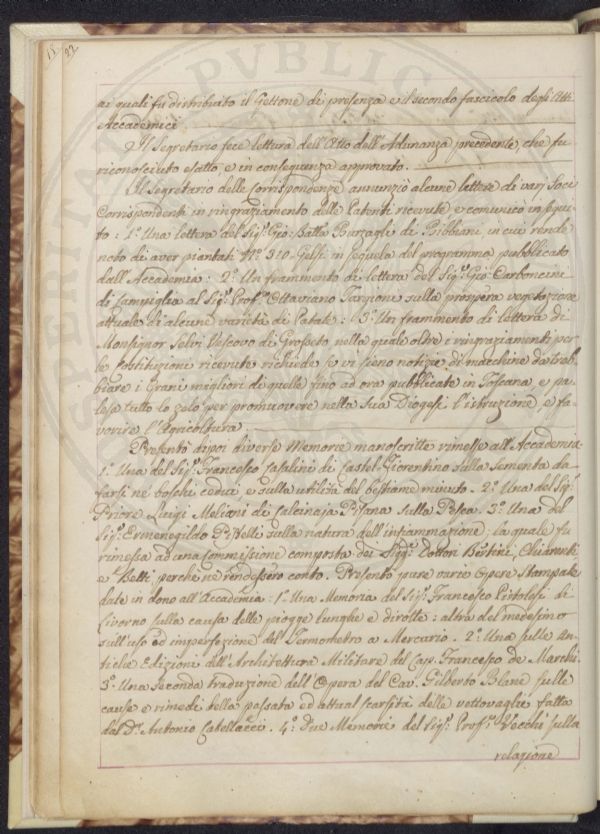 18. 22.
ai quali fu distribuito il Gettone di presenza e il secondo fascicolo degli Atti
Accademici
2 Il Segretario fece lettura dell'Atto dell'Adunanza precedente, che fu
riconosciuto esatto, e in conseguenza approvato.
Il Segretario delle Corrispondenze annunziò alcune lettere di varj Soci
Corrispondenti in ringraziamento delle Patenti ricevute e comunicò in segui-
to: 1.º Una lettera del Sig.r Gio: Batta di Bibbiani in cui rende
noto di aver piantati N.º 310. Gelsi in sequela del programma pubblicato
dall'Accademia: 2.º Un frammento di lettera del Sig.r Gio: Carboncini
di Campiglia al Sig.r Prof.r Ottaviano Targioni sulla prospera vegetazione
attuale di alcune varietà di Patate: 3.º Un frammento di lettera di
Monsignor Selvi Vescovo di Grosseto nella quale oltre i ringraziamenti per
le Costituzioni ricevute richiede se vi sieno notizie di macchine da treb-
biare i Grani migliori di quelle fino ad ora pubblicate in Toscana, e pa-
lesa tutto lo zelo per promuovere nella sua Diogesi l'istruzione, e fa-
vorire l'Agricoltura.
Presentò dipoi diverse Memorie manoscritte rimesse all'Accademia
1.º Una del Sig.r Francesco di Castel-Fiorentino sulla Sementa da
farsi ne boschi cedui e sulla utilità del bestiame minuto. 2.º Una del Sig.r
Priore Luigi Meliani di Calcinaja Pisana sulla Pesca. 3.º Una del
Sig.r Ermenegildo Pistelli sulla natura dell'infiammazione; la quale fu
rimessa ad una Commissione composta dei Sigg.ri Dottori Bertini, Chiarugi
e Betti perchè ne rendessero conto. Presentò pure varie Opere Stampate
date in dono all'Accademia: 1.º Una Memoria del Sig.r Francesco Pistolesi di
Livorno sulla causa delle piogge lunghe e dirotte: altra del medesimo
sull'uso ed imperfezione del Termometro a Mercurio. 2.º Una sulle an-
tiche Edizioni dell'Architettura Militare del Cap. Francesco de Marchi.
3.º Una seconda traduzione dell'Opera del Cav. Gilberto Blane sulle
cause e rimedi della passata ed attual scarsità delle vettovaglie fatta
dal D.r Antonio Catellacci. 4.º Due Memorie del Sig.r Prof.r Vecchi sulla
relazione